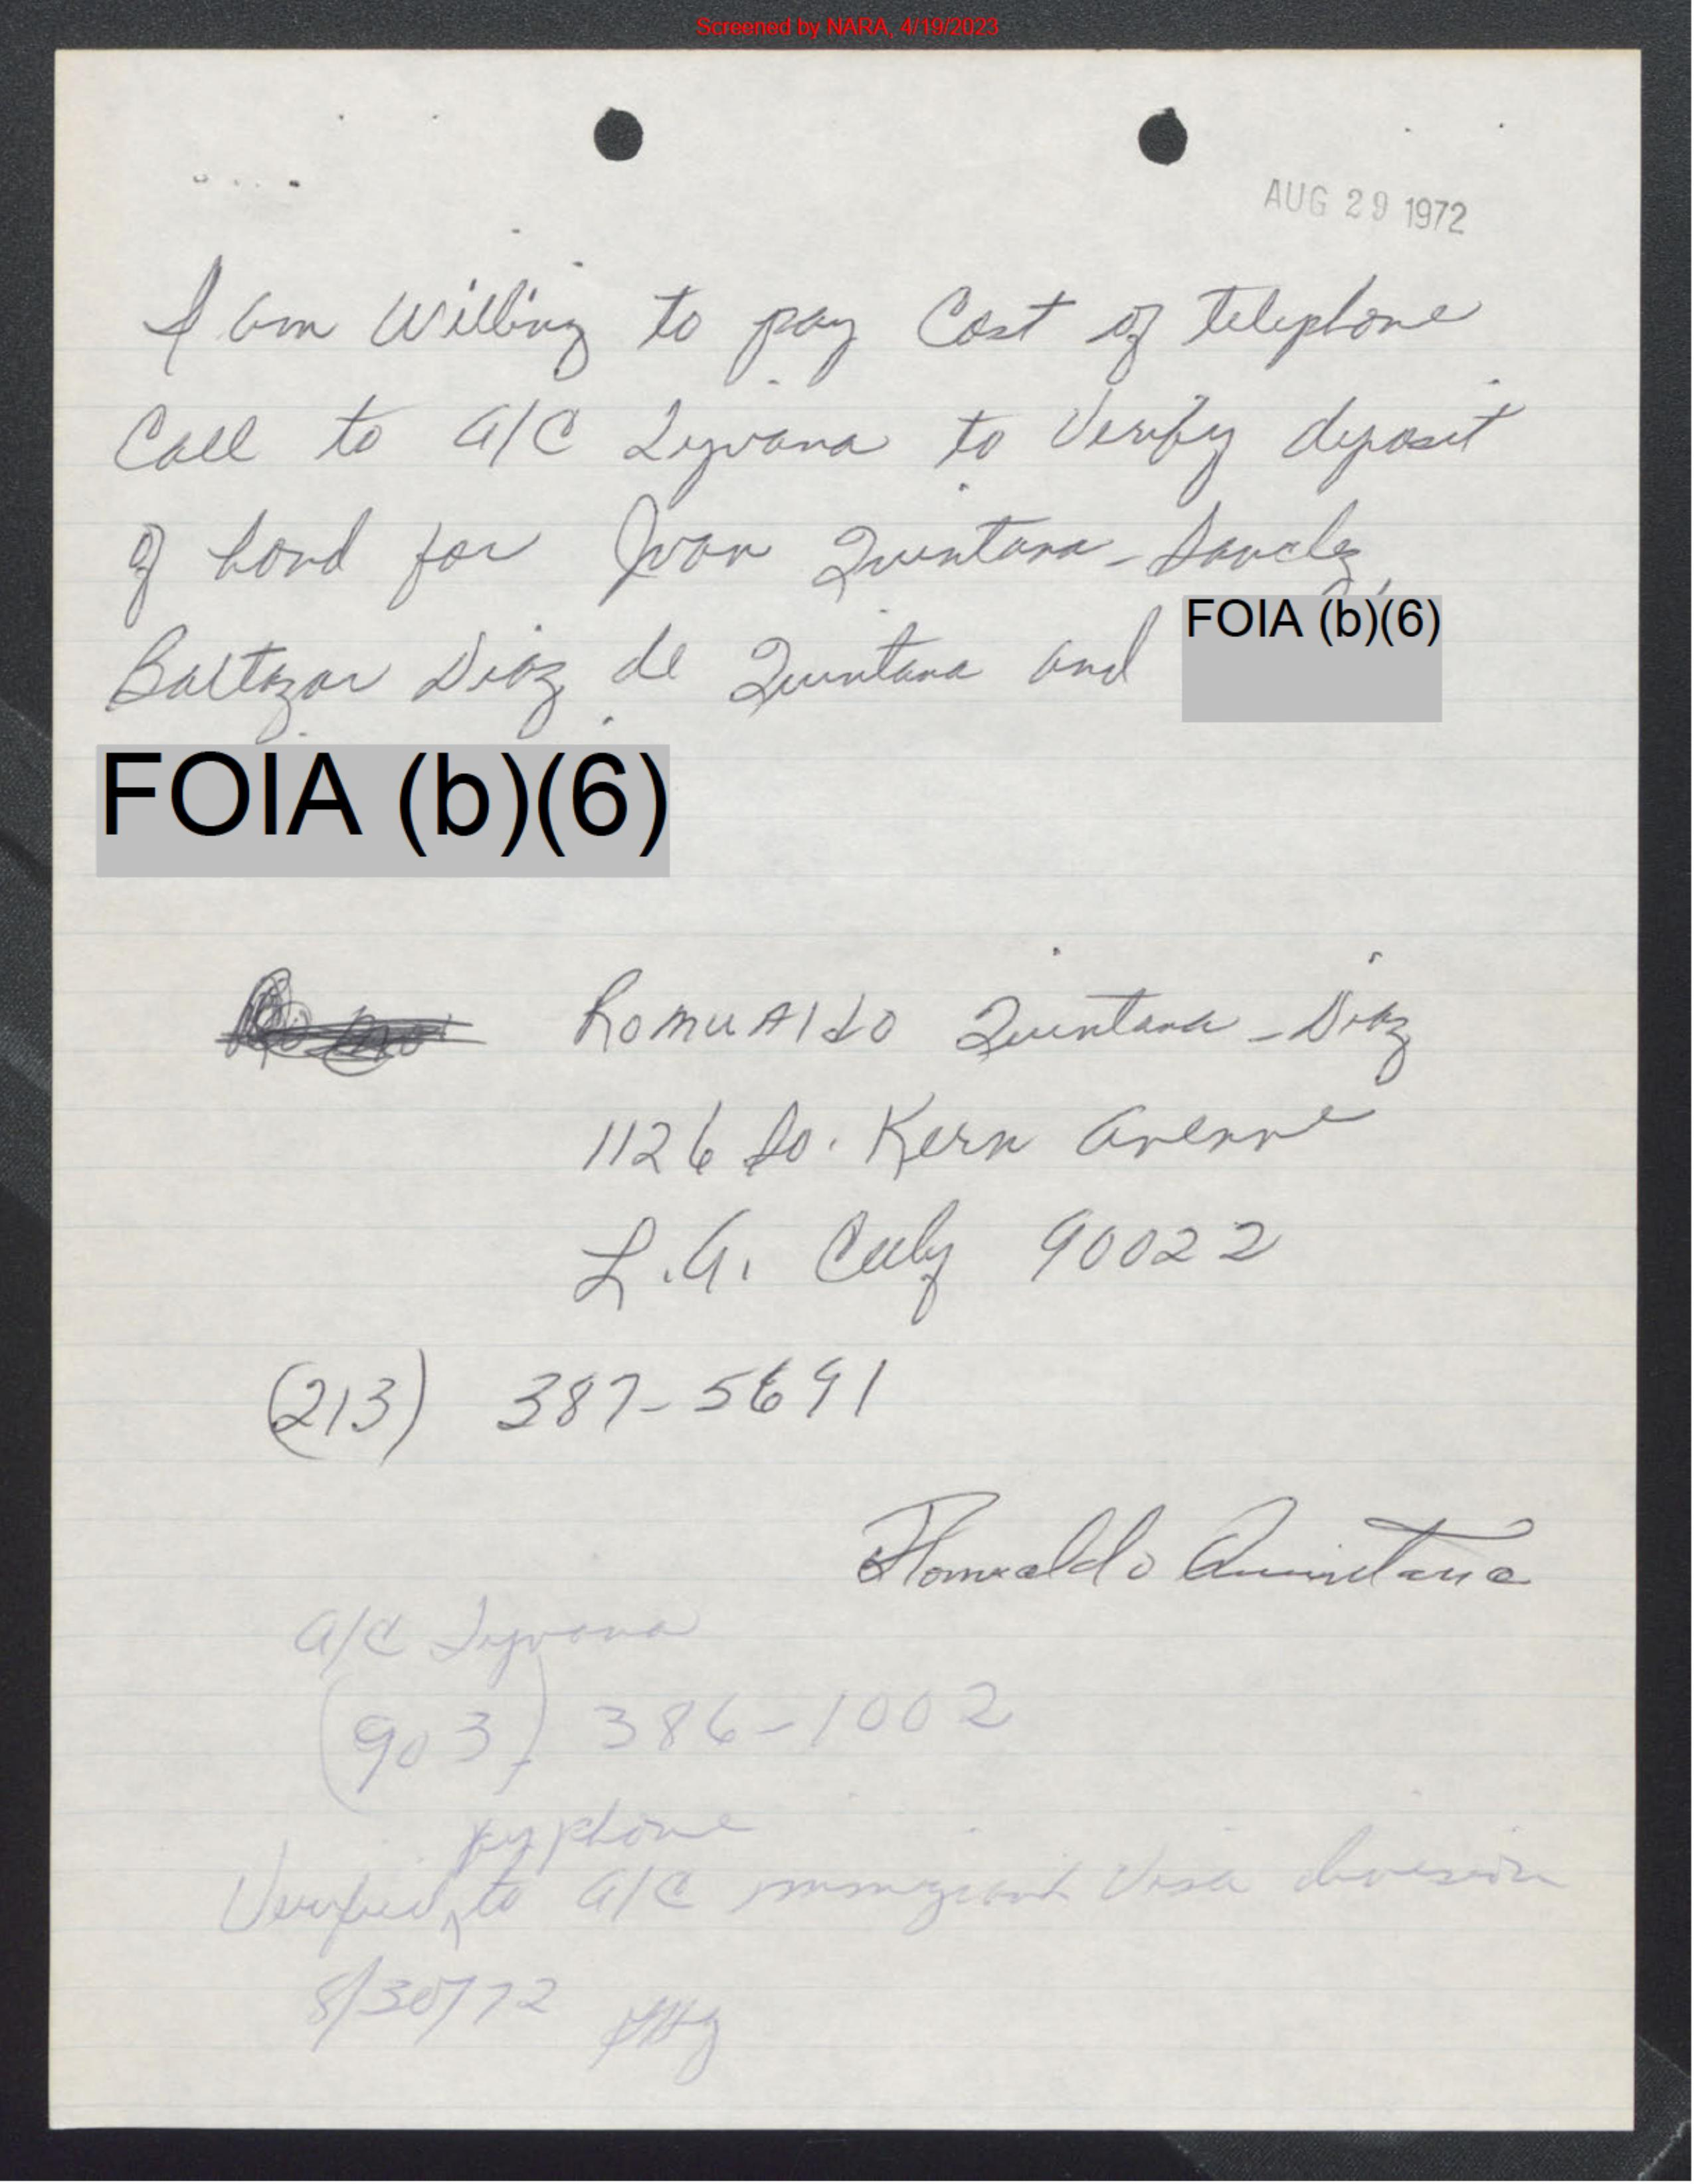 Screened by NARA, 4/19/2023
AUG 29 1972
I am Willing to pay Cost of telephone
Call to A/C Tijuana to Verify deposit
of bond for Juan Quintana-Sanchez,
FOIA (b)(6)
Baltazar Diaz de Quintana and
FOIA (b)(6)
Romualdo Quintana-Diaz
1126 So. Kern Avenue
L.A. Calif 90022
(213) 387-5691
Romualdo Quintana
A/C Tijuana
(903) 386-1002
by phone
Verified to A/C immigrant Visa division
8/30/72